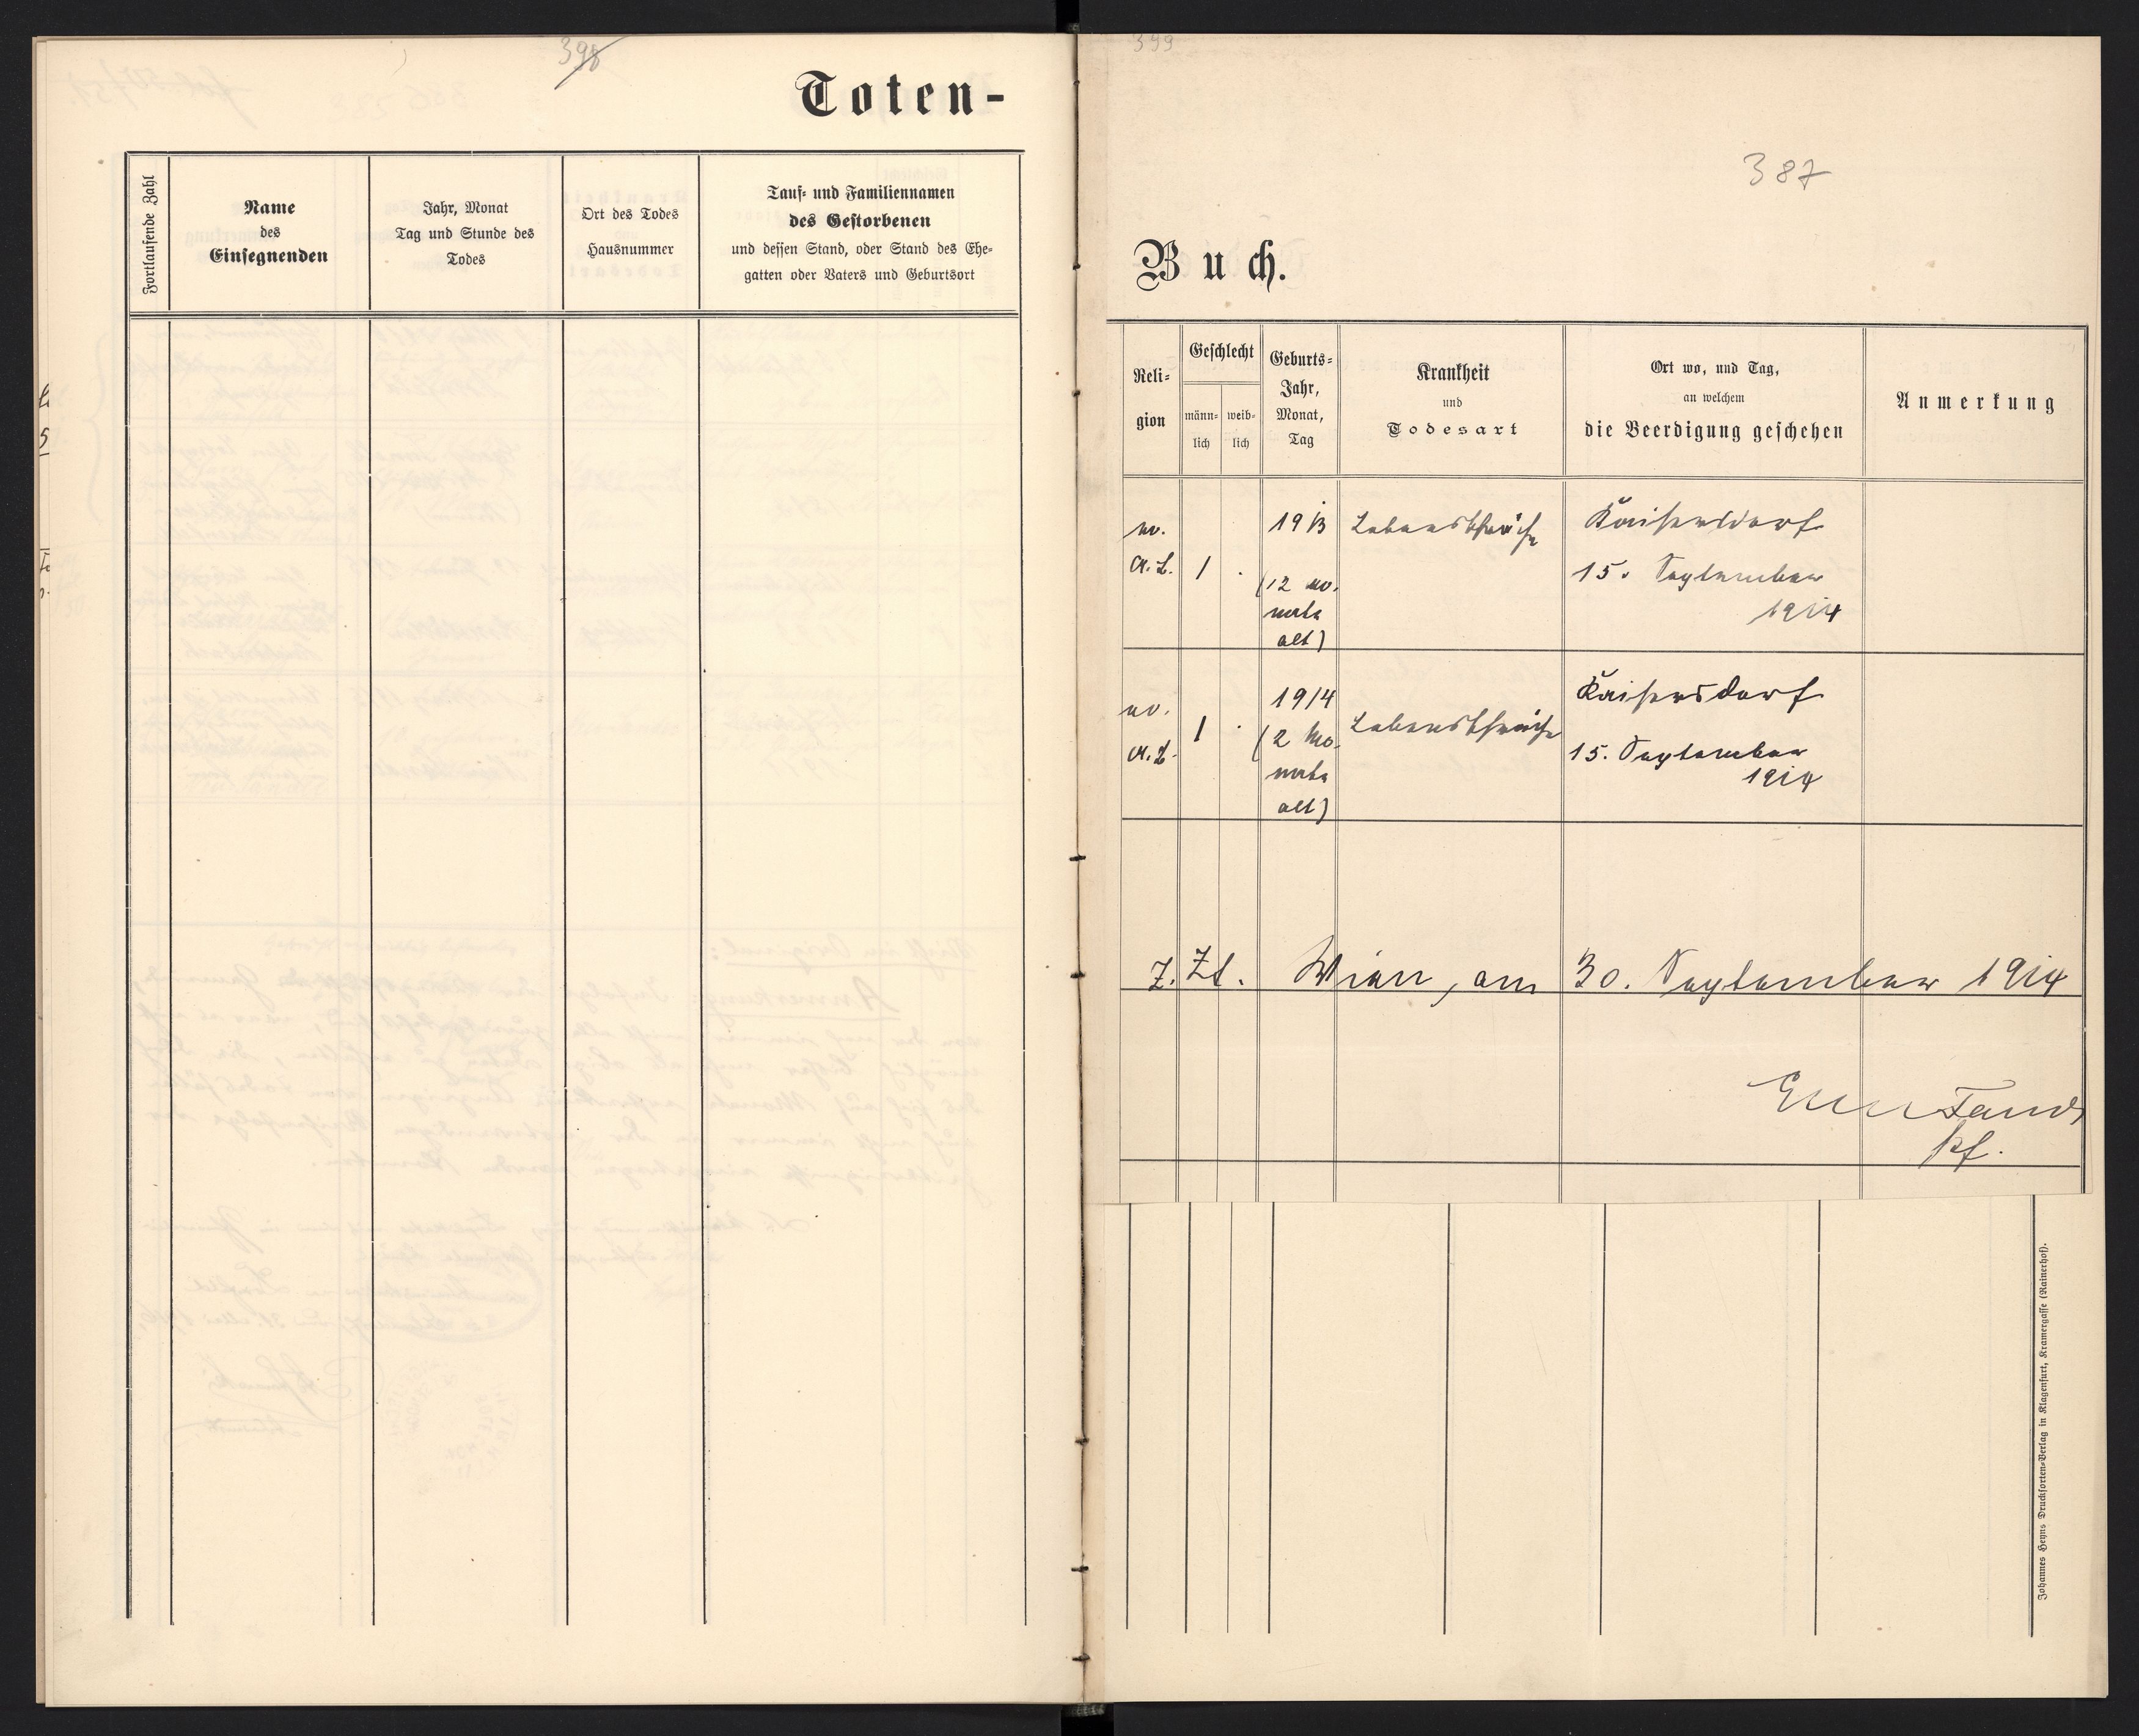 398
Toten-
Fortlaufende Zahl
Name
des
Einsegnenden
Jahr, Monat
Tag und Stunde des
Todes
Ort des Todes
Hausnummer
Tauf- und Familiennamen
des Gestorbenen
und dessen Stand, oder Stand des Ehe-
gatten oder Vaters und Geburtsort
399
387
Buch.
Reli-
gion
Geschlecht
männ-
lich
weib-
lich
Geburts-
Jahr,
Monat,
Tag
Krankheit
und
Todesart
Ort wo, und Tag,
an welchem
die Beerdigung geschehen
Anmerkung
A. L.
1
1913
(12 Mo-
nate
alt)
Lebensschwäche
Kaisersdorf
15. September
1914
A. L.
1
1914
(2 Mo-
nate
alt)
Lebensschwäche
Kaisersdorf
15. September
1914
Z. Zt. Wien, am 30. September 1914
Johannes Heyns Drucksorten-Verlag in Klagenfurt, Kramergasse (Rainerhof).